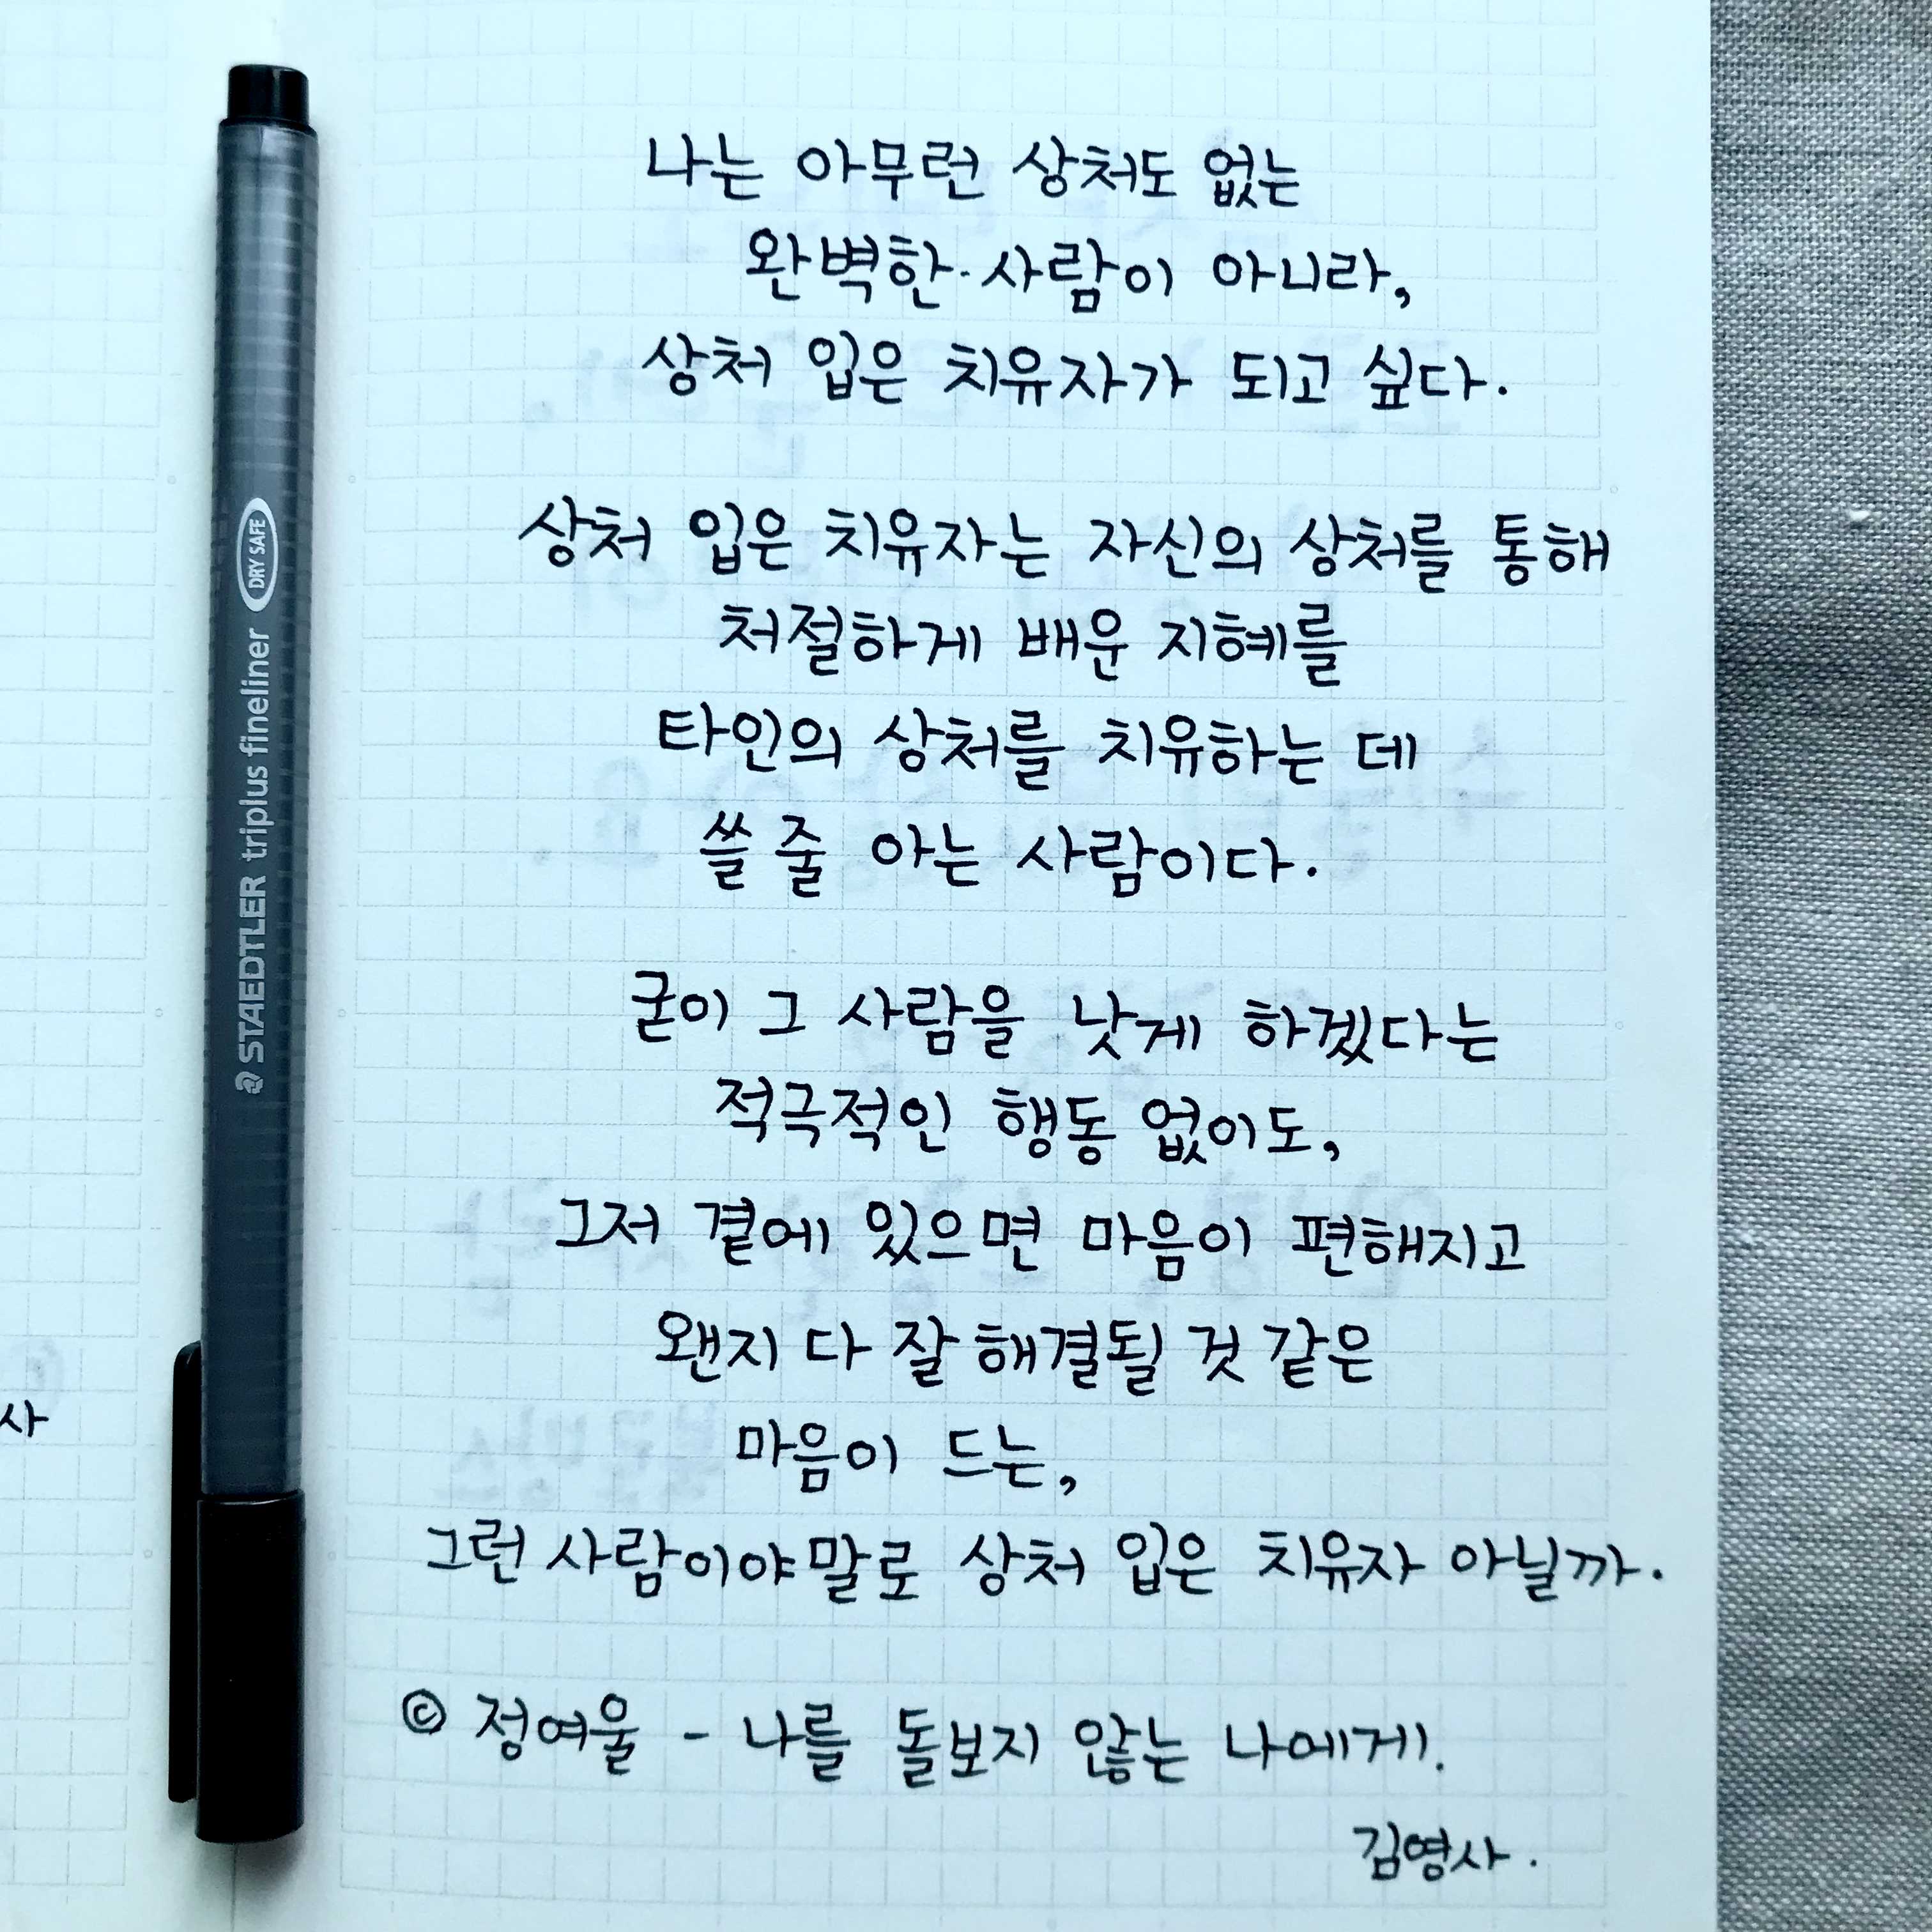 나는 아무런 상처도 없는
완벽한 사람이 아니라,
상처 입은 치유자가 되고 싶다.
상처 입은 치유자는 자신의 상처를 통해
처절하게 배운 지혜를
타인의 상처를 치유하는 데
쓸 줄 아는 사람이다.
굳이 그 사람을 낫게 하겠다는
적극적인 행동 없이도,
그저 곁에 있으면 마음이 편해지고
왠지 다 잘 해결될 것 같은
마음이 드는,
그런 사람이야말로 상처 입은 치유자 아닐까.
© 정여울 - 나를 돌보지 않는 나에게.
김영사.
STAEDTLER triplus fineliner DRY SAFE
사